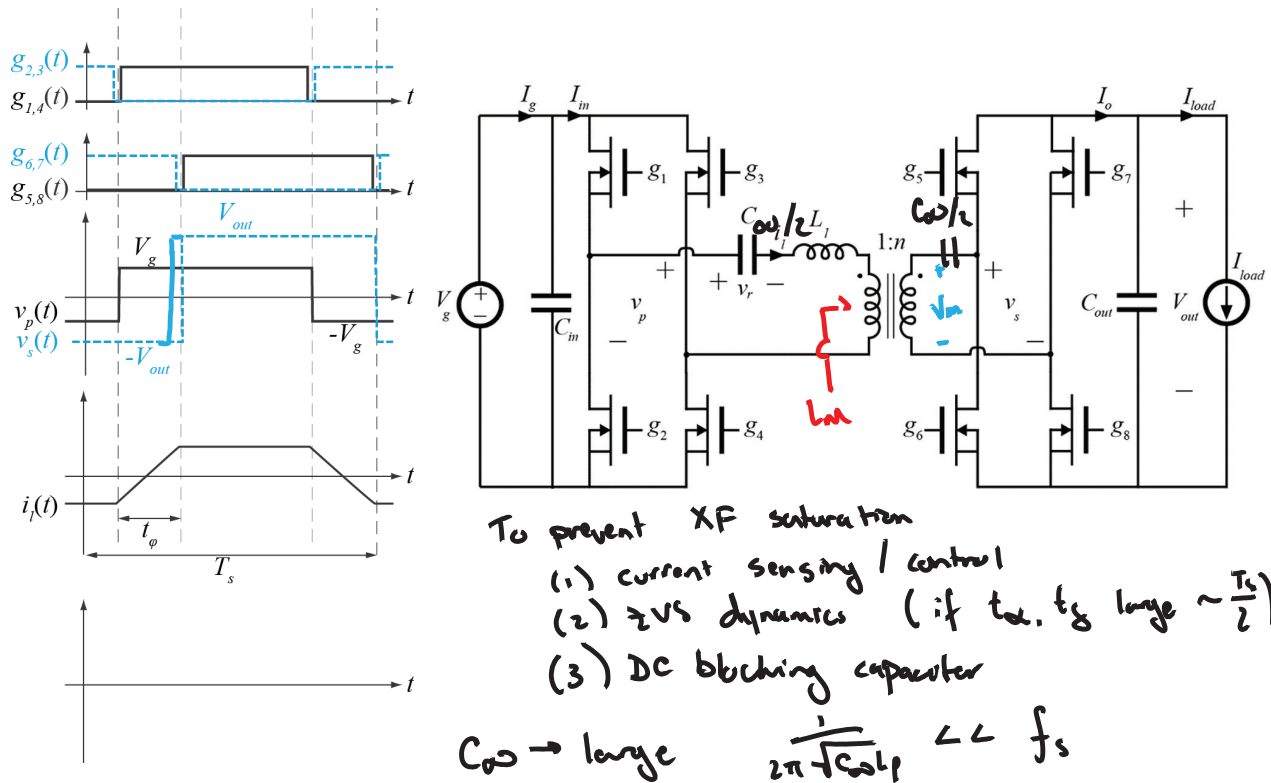 g_{2,3}(t)
g_{1,4}(t)
t
g_{6,7}(t)
g_{5,8}(t)
t
V_{out}
V_g
v_p(t)
v_s(t)
-V_{out}
-V_g
t
i_l(t)
t
t_φ
T_s
t
I_g
I_{in}
I_o
I_{load}
g_1
g_3
g_5
g_7
C_∞/2
i_l
L_l
1:n
C_∞/2
+
V_g
+
−
C_{in}
+
v_p
−
+ v_r −
+
V_m
−
+
v_s
−
C_{out}
+
V_{out}
−
I_{load}
L_M
g_2
g_4
g_6
g_8
To prevent XF saturation
(1) current sensing / control
(2) ZVS dynamics (if t_α, t_δ large ~ T_s/2)
(3) DC blocking capacitor
C_∞ → large 1/(2π√(C_∞L_p)) << f_s